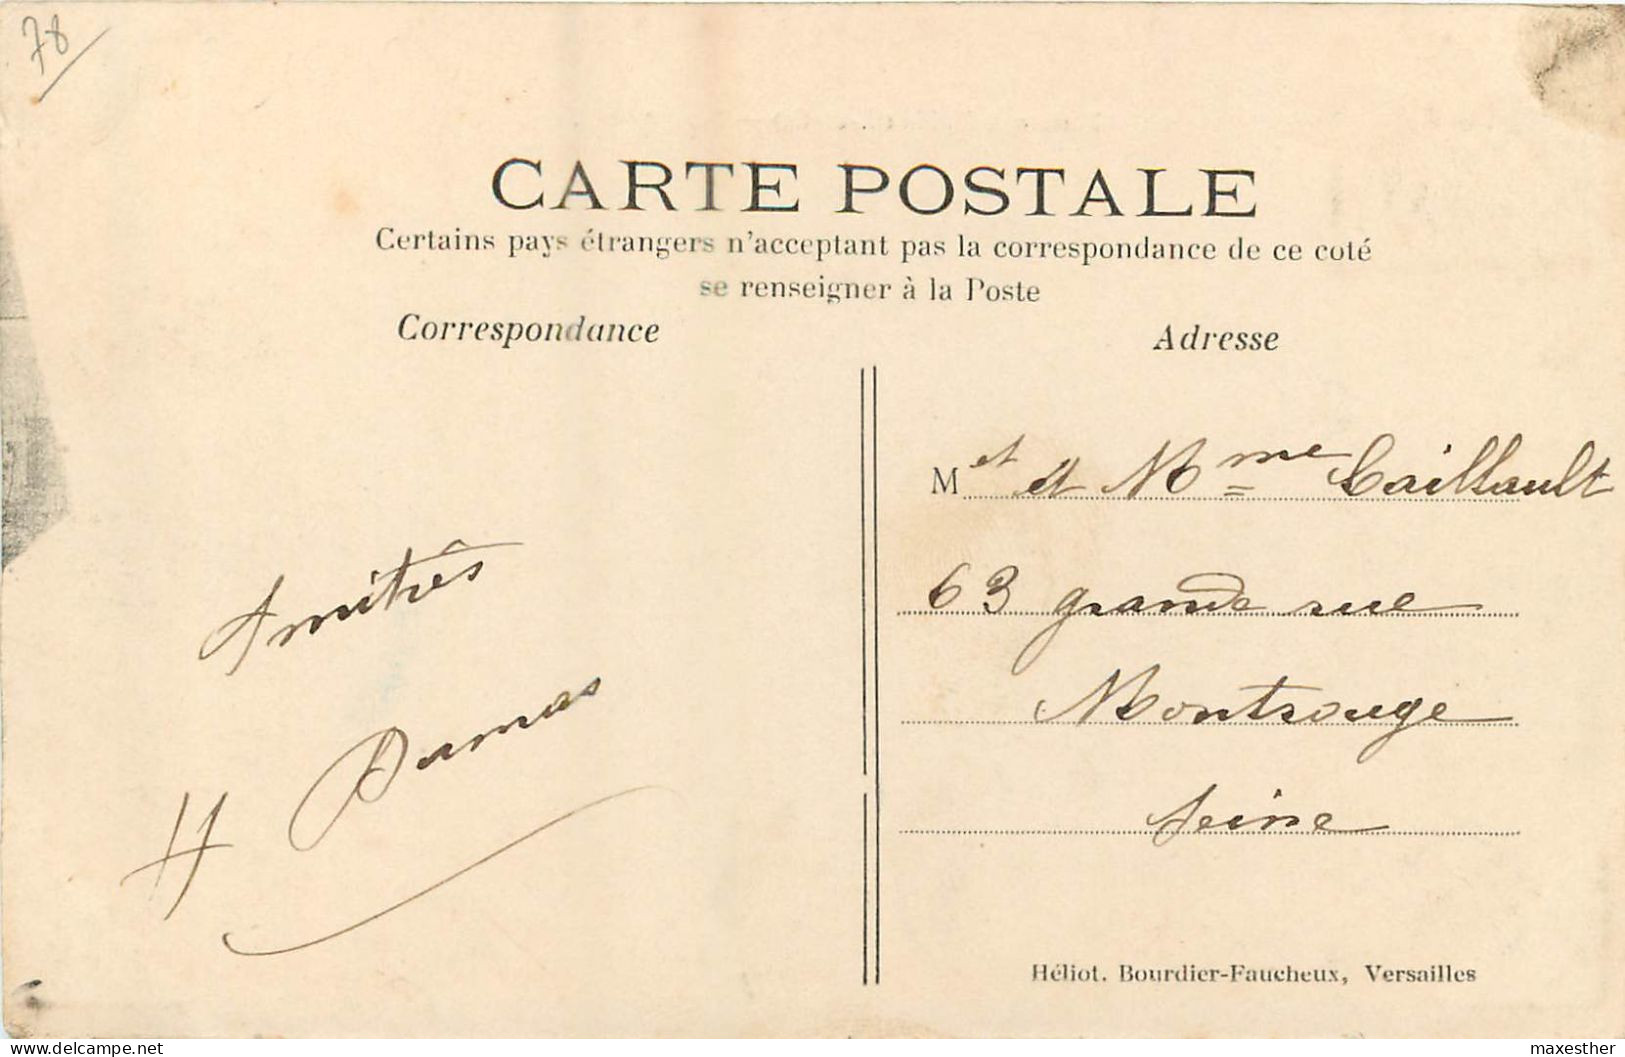 78
CARTE POSTALE
Certains pays étrangers n'acceptant pas la correspondance de ce coté
se renseigner à la Poste
Correspondance
Adresse
Amitiés
H Dumas
M et et Mme Caillault
63 grande rue
Montrouge
Seine
Héliot. Bourdier-Faucheux, Versailles
delcampe.net
maxesther